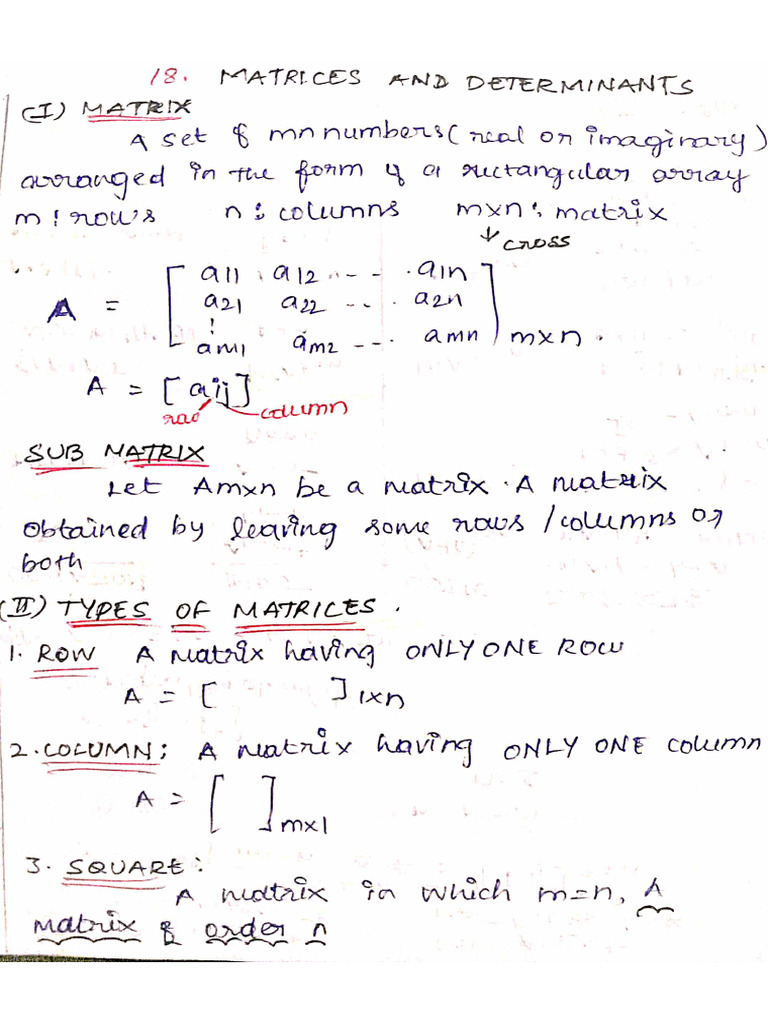 18. MATRICES AND DETERMINANTS
(I) MATRIX
A set of mn numbers (real or imaginary)
arranged in the form of a rectangular array
m : rows n : columns m×n : matrix
↓ cross
A = [ a11 a12 -- . a1n
a21 a22 -- . a2n
⋮
am1 am2 -- . amn ] m×n .
A = [aij]
row column
SUB MATRIX
Let Am×n be a matrix . A matrix
obtained by leaving some rows / columns or
both
(II) TYPES OF MATRICES .
1. ROW A matrix having ONLY ONE ROW
A = [ ] 1×n
2. COLUMN : A matrix having ONLY ONE column
A = [ ] m×1
3. SQUARE :
A matrix in which m=n, A
matrix of order n